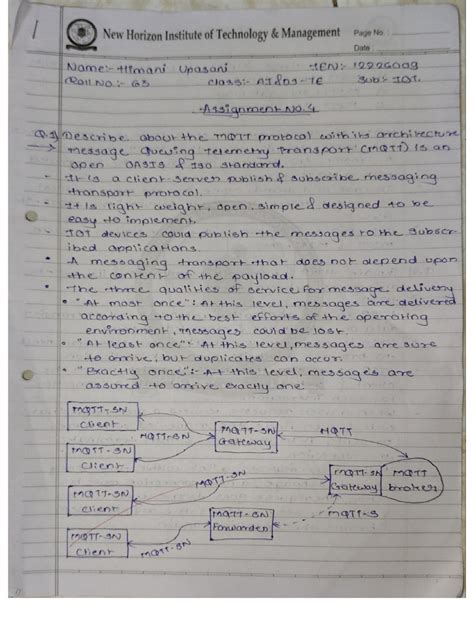 1
New Horizon Institute of Technology & Management
Page No.
Date
Name:- Himani Upasani
TEN:- 12226009
Roll No:- 63
class:- AI&DS-TE
Sub:- IOT.
Assignment No. 4
Q.1) Describe about the MQTT protocol with its architecture
→ message Queuing Telemetry Transport (MQTT) is an
open OASIS & ISO standard.
- It is a client server publish & subscribe messaging
transport protocol.
- It is light weight, open, simple & designed to be
easy to implement.
- IOT devices could publish the messages to the subscr-
ibed applications.
• A messaging transport that does not depend upon
the content of the payload.
• The three qualities of service for message delivery
• "At most once": At this level, messages are delivered
according to the best efforts of the operating
environment, messages could be lost.
• "At least once": At this level, messages are sure
to arrive, but duplicates can occur.
• "Exactly once": At this level, messages are
assured to arrive exactly one.
MQTT-SN
client
MQTT-SN
MQTT-SN
Gateway
MQTT
MQTT-SN
client
MQTT-SN
MQTT-SN
client
MQTT-SN
Gateway
MQTT
broker
MQTT-SN
Forwarder
MQTT-S
MQTT-SN
client
MQTT-SN